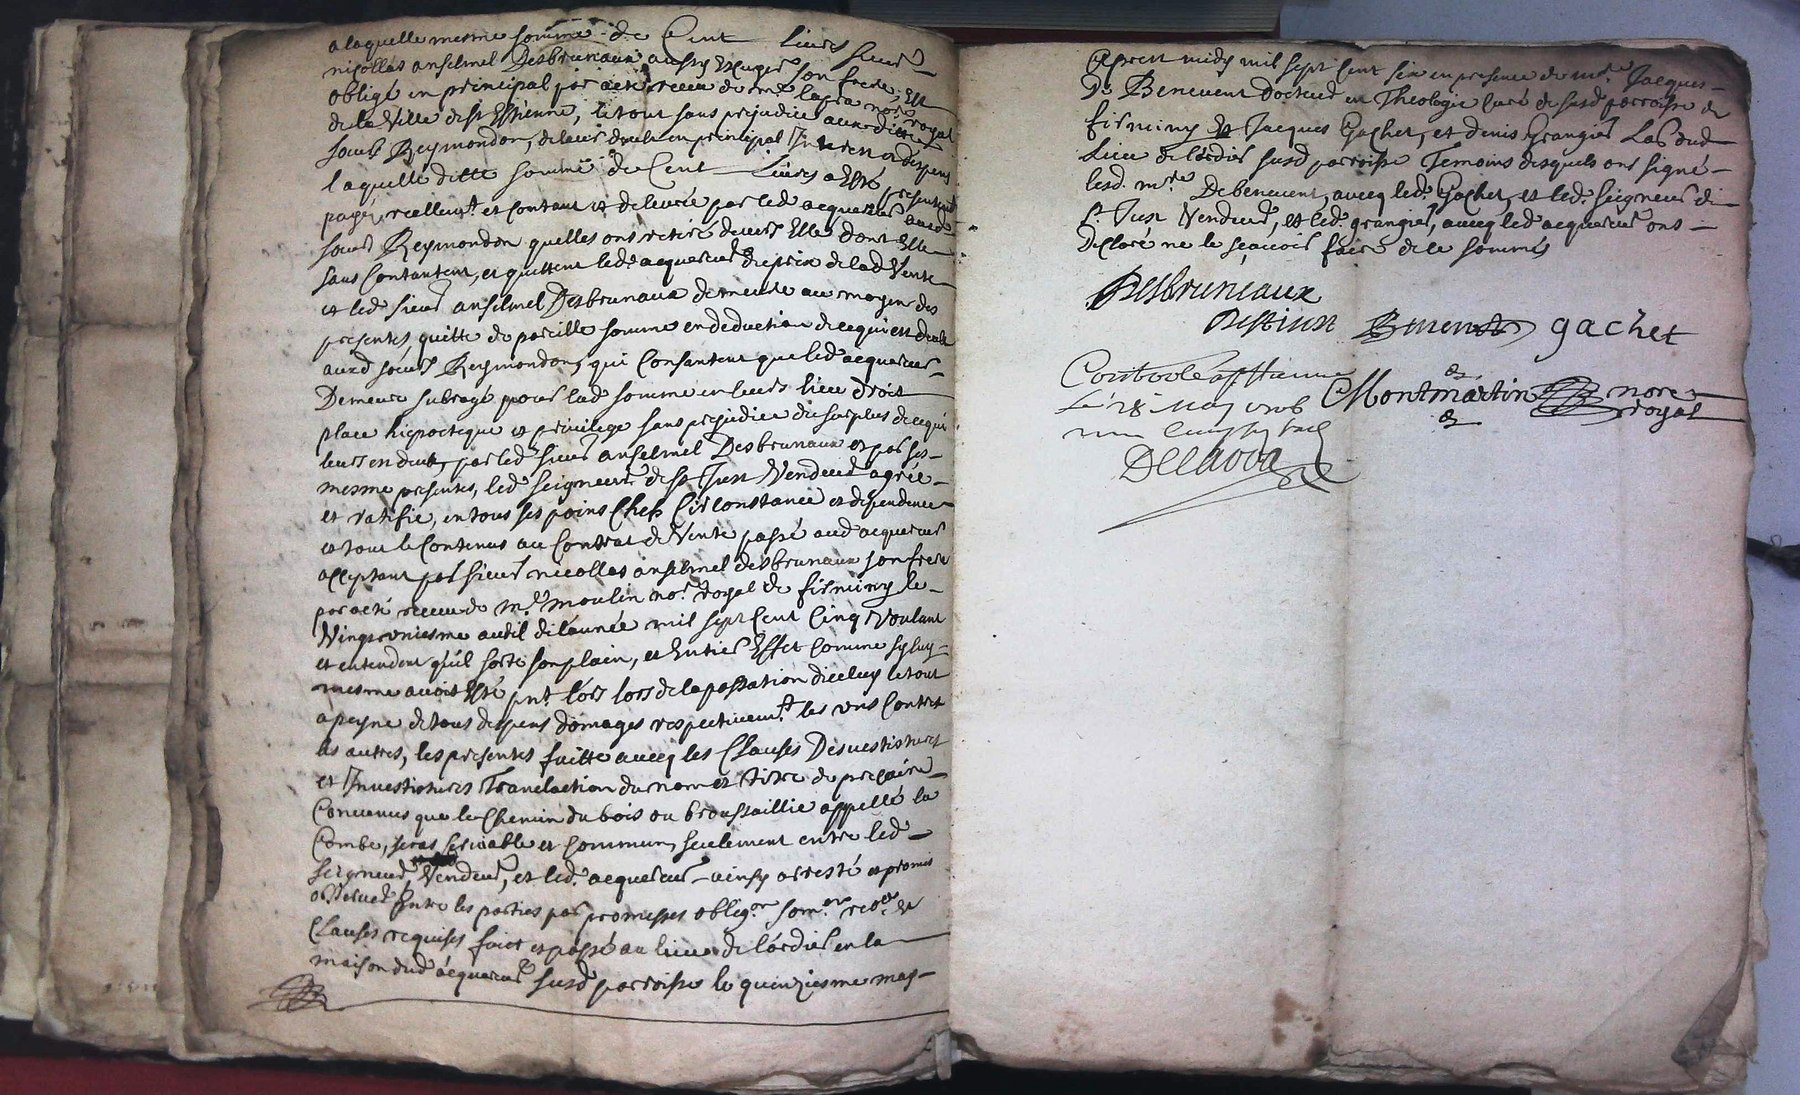 a laquelle mesme somme de Cent Livres sieur
nicollas anselmel Desbrunaux aussy Escuyer son frere Est
obligé en principal par acte receu de me lapra nore royal
de la Ville de st Estienne, le tout sans prejudice auxdittes
soeurs Reymondon, de leur deub en principal Interest et despens
laquelle ditte somme de Cent Livres a Esté presentement
payé reellemt et contant et delivrée par led acquereur auxd
soeurs Reymondon quelles ont retiré devers Elle dont Elle
sans Contantent, et quittent led acquereur du prix de lad Vente
et led sieur anselmel Desbrunaux demeure au moyen des
presentes quitte de pareille somme en deduction de ce qui est deub
auxd soeurs Reymondon, qui Consantent que led acquereur
Demeure subrogé pour lad somme en leurs lieu droit
place hipoteque et privilege sans prejudice du surplus de ce qui
leurs en deub, par led sieur anselmel Desbrunaux et par ses
mesme presentes, led seigneur de st Just Vendeur agrée
et ratifie, en tous ses poins Chefs Circonstance et dependence
et tout le Contenus au Contrat de Vente passé aud acquereur
acceptant par sieur nicollas anselmel desbrunaux son frere
par acte receu de Me moulin nore royal de firminy le
Vingt uniesme avril de l'année mil sept Cent Cinq Voulant
et entendent qu'il sorte son plain, et Entier Effet Comme sy luy
mesme avoit Esté pnt lors lors de la passation d'icelluy le tout
a peyne de tous despens domages respectivemt les uns Contre
les autres, les presentes faitte avecq les Clauses Desvestitures
et Investitures Translaction du nom et titre de precaire
Convenus que le Chemin du bois ou broussaillie appellé la
Combe, seras serviable et Commun, seulement entre led
seigneur Vendeur, et led. acquereur ainsy arresté et promis
observer Entre les parties par promesses obligon som.on reon et
Clauses requises fait et passé au lieu de l'ardier en la
maison dud acquereur susd parroisse le quinziesme may
Apres midy mil sept Cent six en presence de mre Jacques
De Benevent Docteur en Theologie Curé de susd parroisse de
firminy Et Jacques Gachet, et denis Grangier Lab dud
Lieu de l'ardier susd parroisse Temoins desquels ons signé
lesd. mre Debenevent, avecq led. Gachet, et led. seigneur de
St Just Vendeur, et led. grangier, avecq led acquereur ons
Declaré ne le sçavoir faire de ce sommés
Desbruneaux
Dest iust Benevent gachet
Controolé a st Etienne
Montmartin nore
royal
Le 28 may 1706
Delaova